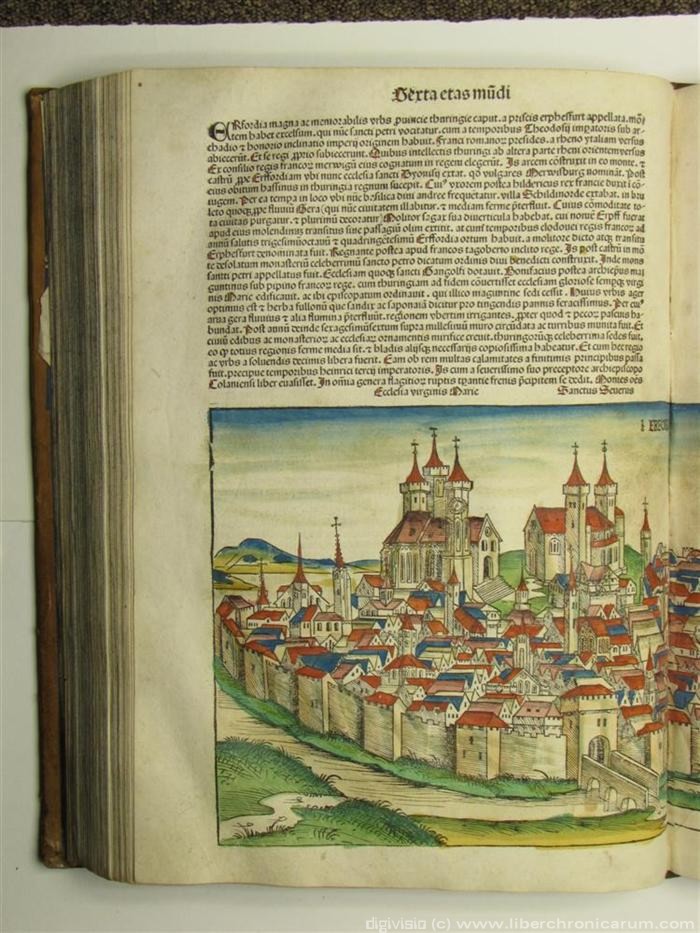 Sexta etas mūdi
ERfordia magna ac memorabilis vrbs ꝓuincie thuringie caput. a priscis erpheſfurt appellata. mō
tem habet excelsum. qui nūc sancti petri vocitatur. cum a temporibus Theodosij impatoris sub ar-
chadio ⁊ honorio inclinatio imperij originem habuit. Franci romanoꝝ presides. a rheno ytaliam versus
abiecerūt. Et se regi ꝓprio subiecerunt. Quibus intellectis thuringi ab altera parte rheni orientem versus
Ex consilio regis francoꝝ merwigni eius cognatum in regem elegerūt. Is arcem cōstruxit in eo monte. ⁊
castrū ꝓpe Erffordiam vbi nunc ecclesia sancti Dyonisij extat. qḋ vulgares Merwisburg nomināt. Post
eius obitum bassinus in thuringia regnum suscepit. Cuiꝰ vxorem postea hildericus rex francie duxit i cō-
iugem. Per ea tempa in loco vbi nūc basilica diui andree frequētatur. villa Schildinorde extabat. in
leto quoqꝫ ꝓpe fluuiū Gera (qui nūc ciuitatem illabitur. ⁊ mediam ferme ꝑterfluit. Cuius cōmoditate to-
ta ciuitas purgatur. ⁊ plurimū decoratur) Molitor sagax sua diuerticula habebat. cui nomē Erpff fuerat
apud eius molendinū transitus siue passagiū olim extitit. at cum temporibus clodouei regis francoꝝ ad
annū salutis trigesimūoctauū ⁊ quadringētesimū Erffordia ortum habuit. a molitore dicto atqꝫ transitu
Erphesfurt denominata fuit. Regnante postea apud francos tagoberto inclito rege. Is post castrū in mō
te desolatum monasteriū celeberrimū sancto petro dicatum ordinis diui benedicti construxit. Inde mons
sancti petri appellatus fuit. Ecclesiam quoqꝫ sancti Gangolfi dotauit. Bonifacius postea archiepus ma
guntinus sub pipino francoꝝ rege. cum thuringiam ad fidem cōuertisset ecclesiam gloriose sempqꝫ virgi
nis Marie edificauit. ac ibi episcopatum ordinauit. qui illico maguntine sedi cessit. Huius vrbis ager
optimus est ⁊ herba fullonū que sandix ac saponaria dicitur pro tingendis pannis feracissimus. Per
arua gera fluuius ⁊ alia flumina ꝑterfluūt. regionem vbertim irrigantes. ꝓpter quod ⁊ pecoꝝ pascuis ha-
bundat. Post annū deinde sexagesimūsextum supra millesimū muro circūdata ac turribus munita fuit. Et
ciuiū edibus ac monasterioꝝ ac ecclesiaꝝ ornamentis mirifice creuit. thuringorūqꝫ celeberrima sedes fuit.
eo ꝙ totius regionis ferme media sit. ⁊ bladis alijsqꝫ necessarijs copiosissima habeatur. Et cum hec regio
ac vrbs a soluendis decimis libera fuerit. Eam ob rem multas calamitates a finitimis principibus passa
fuit. precipue temporibus heinrici tercij imperatoris. Is cum a seuerissimo suo preceptore archiepiscopo
Colaniensi liber euasisset. In omia genera flagitioꝝ ruptis tyrānie frenis ꝑcipitem se dedit. Montes oēs
Ecclesia virginis Marie Sanctus Seuerus
digivisio (c) www.liberchronicarum.com